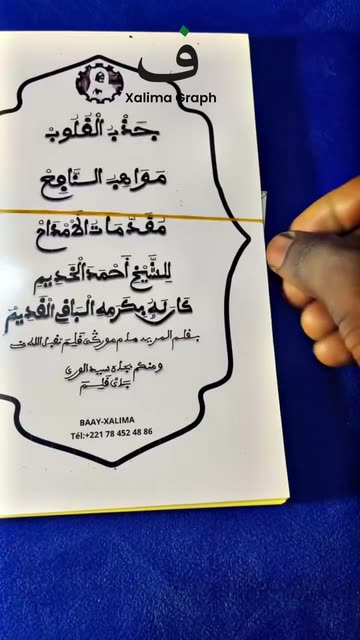 ف
Xalima Graph
جذب القلوب
مواهب النافع
مقدمات الأمداح
للشيخ أحمد الخديم
كان له بكرمه الباقي القديم
بقلم المريد مام مور قليم تقبل الله
BAAY-XALIMA
Tél:+221 78 452 48 86